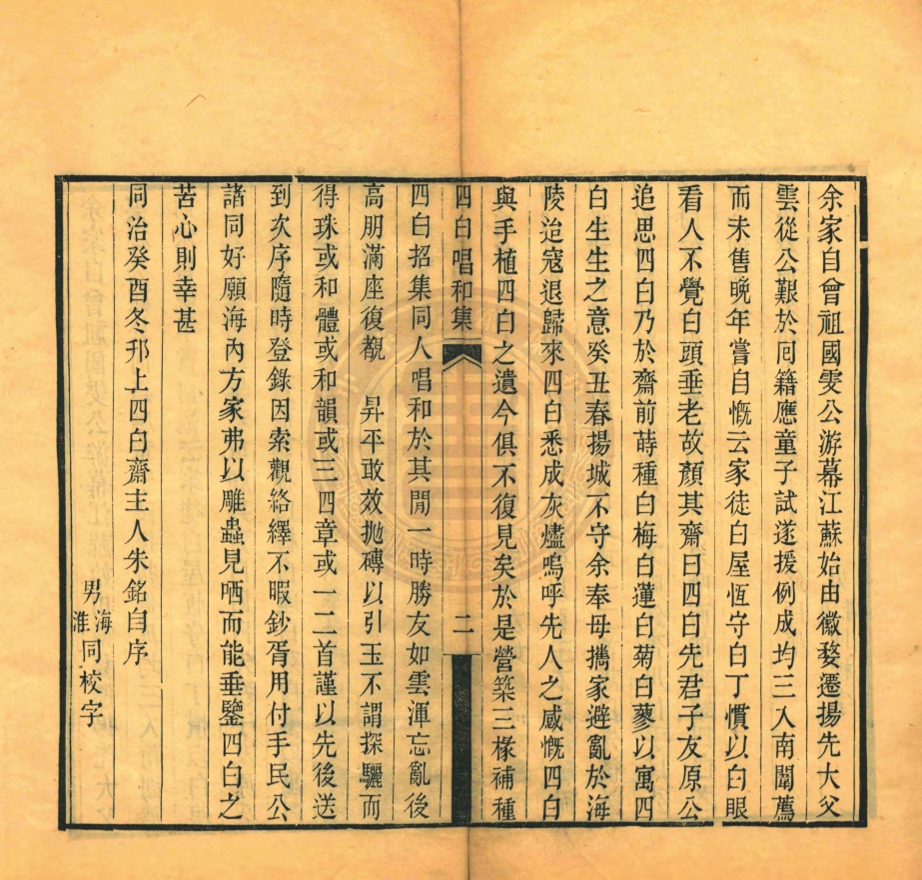 余家自曾祖國雯公游幕江蘇始由徽婺遷揚先大父
雲從公艱於囘籍應童子試遂援例成均三入南闈薦
而未售晚年嘗自慨云家徒白屋恆守白丁慣以白眼
看人不覺白頭垂老故顏其齋曰四白先君子友原公
追思四白乃於齋前蒔種白梅白蓮白菊白蓼以寓四
白生生之意癸丑春揚城不守余奉母攜家避亂於海
陵迨寇退歸來四白悉成灰燼嗚呼先人之感慨四白
與手植四白之遺今俱不復見矣於是營築三椽補種
四白唱和集 二
四白招集同人唱和於其閒一時勝友如雲渾忘亂後
高朋滿座復覩 昇平敢效拋磚以引玉不謂探驪而
得珠或和體或和韻或三四章或一二首謹以先後送
到次序隨時登錄因索觀絡繹不暇鈔胥用付手民公
諸同好願海內方家弗以雕蟲見哂而能垂鑒四白之
苦心則幸甚
同治癸酉冬邗上四白齋主人朱銘自序
男海淮同校字